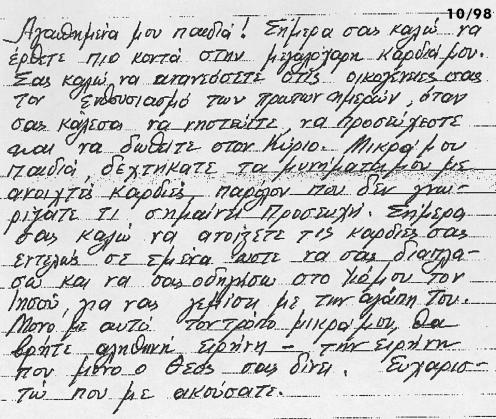 10/98
Αγαπημένα μου παιδιά! Σήμερα σας καλώ να
έρθετε πιο κοντά στην μεγαλόχαρη καρδιά μου.
Σας καλώ να ανανεώσετε στις οικογένειες σας
τον ενθουσιασμό των πρώτων ημερών, όταν
σας κάλεσα να νηστεύετε, να προσεύχεστε
και να δωθείτε στον Κύριο. Μικρά μου
παιδιά, δεχτήκατε τα μυνήματα μου με
ανοιχτές καρδιές, παρόλον που δεν γνω-
ρίζατε τι σημαίνει Προσευχή. Σήμερα
σας καλώ να ανοίξετε τις καρδιές σας
εντελώς σε εμένα ώστε να σας διαπλά-
σω και να σας οδηγήσω στο Υιό μου τον
Ιησού, για νας γεμίσει με την αγάπη Του.
Μόνο με αυτό τον τρόπο μικρά μου, θα
βρήτε αληθηνή ειρήνη - την ειρήνη
που μόνο ο Θεός σας δίνει. Ευχαρισ-
τώ που με ακούσατε.